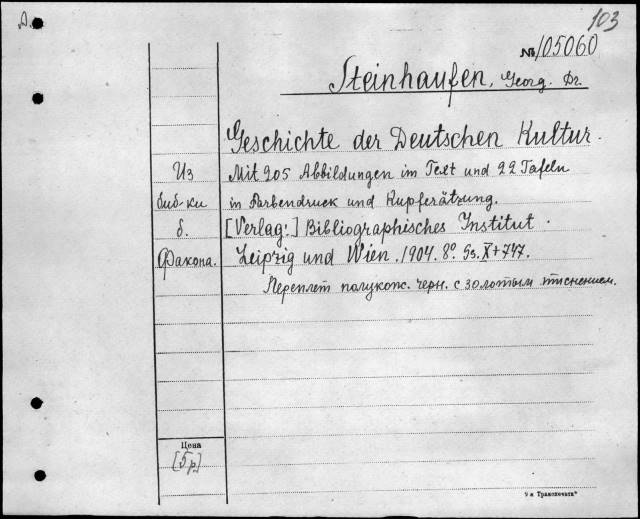 103
№ 105060
Steinhausen, Georg. Dr.
Geschichte der Deutschen Kultur.
Mit 205 Abbildungen im Text und 22 Tafeln
in Farbendruck und Kupferätzung.
[Verlag:] Bibliographisches Institut.
Leipzig und Wien. 1904. 8° Ss. X + 747.
Переплет полукож. черн. с золотым тиснением.
Из
биб-ки
б.
Факона.
Цена
[5 р]
9-я Транспечать"